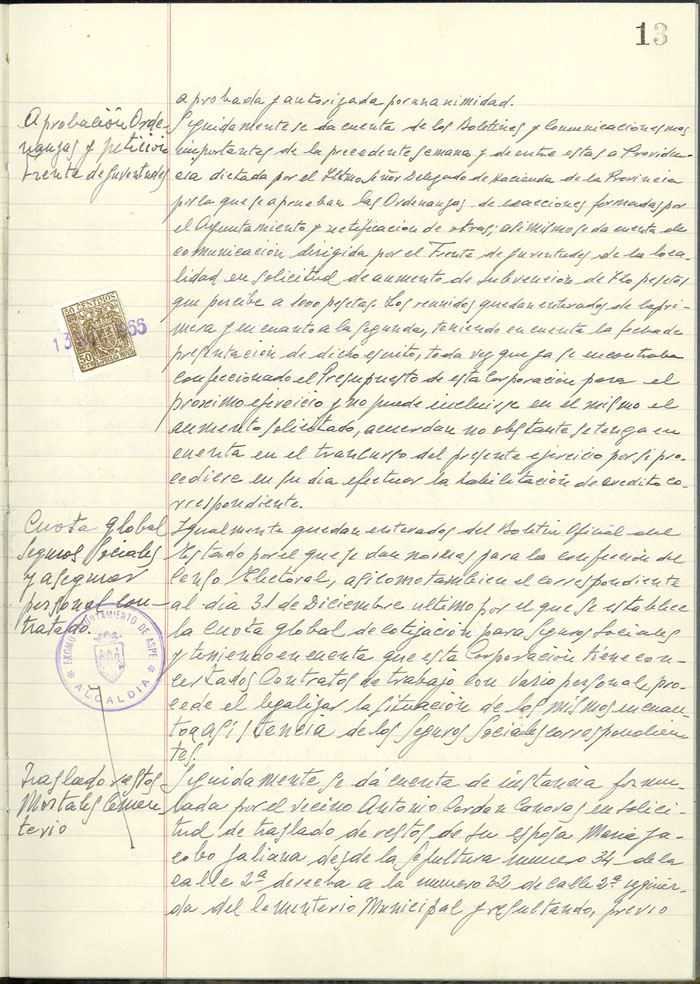 13
aprobada y autorizada por unanimidad.
Aprobación Orde-
nanzas y petición
Frente de Juventudes
Seguidamente se da cuenta de los Boletines y Comunicaciones mas
importantes de la precedente semana, y de entre estas a Providen-
cia dictada por el Iltmo Señor Delegado de Hacienda de la Provincia
por la que se aprueban las Ordenanzas de exacciones formadas por
el Ayuntamiento y rectificacion de otras; asi mismo se da cuenta de
comunicación dirigida por el Frente de Juventudes de la loca-
lidad en solicitud de aumento de subvención de pesetas
que percibe a 1000 pesetas. Los reunidos quedan enterados de la pri-
mera y en cuanto a la segunda, teniendo en cuenta la fecha de
presentación de dicho escrito, toda vez que ya se encontraba
confeccionado el Presupuesto de esta Corporación para el
próximo ejercicio y no puede incluirse en el mismo el
aumento solicitado, acuerdan no obstante se tenga en
cuenta en el trancurso del presente ejercicio por si pro-
cediere en su dia efectuar la habilitación de credito co-
rrespondiente.
50 CENTIMOS
50
Cuota global
Seguros Sociales
y asegurar
personal con-
tratado.
Igualmente quedan enterados del Boletin Oficial del
Estado por el que se dan normas para la confección del
Censo Electoral, asi como tambien el correspondiente
al dia 31 de Diciembre ultimo por el que se establece
la cuota global de cotización para Seguros Sociales
y teniendo en cuenta que esta Corporación tiene con-
certados Contratos de trabajo con vario personal, pro-
cede el legalizar la situación de los mismos en cuan-
to a asistencia de los Seguros Sociales correspondien-
tes.
EXCMO. AYUNTAMIENTO DE ASPE
ALCALDIA
Traslado restos
Mortales Cemen-
terio
Seguidamente se dá cuenta de instancia formu-
lada por el vecino Antonio Cerdan Canovas en solici-
tud de traslado de restos de su esposa Maria Ja-
cobo Galiana desde la Sepultura numero 34 de la
calle 2ª derecha a la numero 32 de Calle 2ª izquier-
da del Cementerio Municipal y resultando, previo